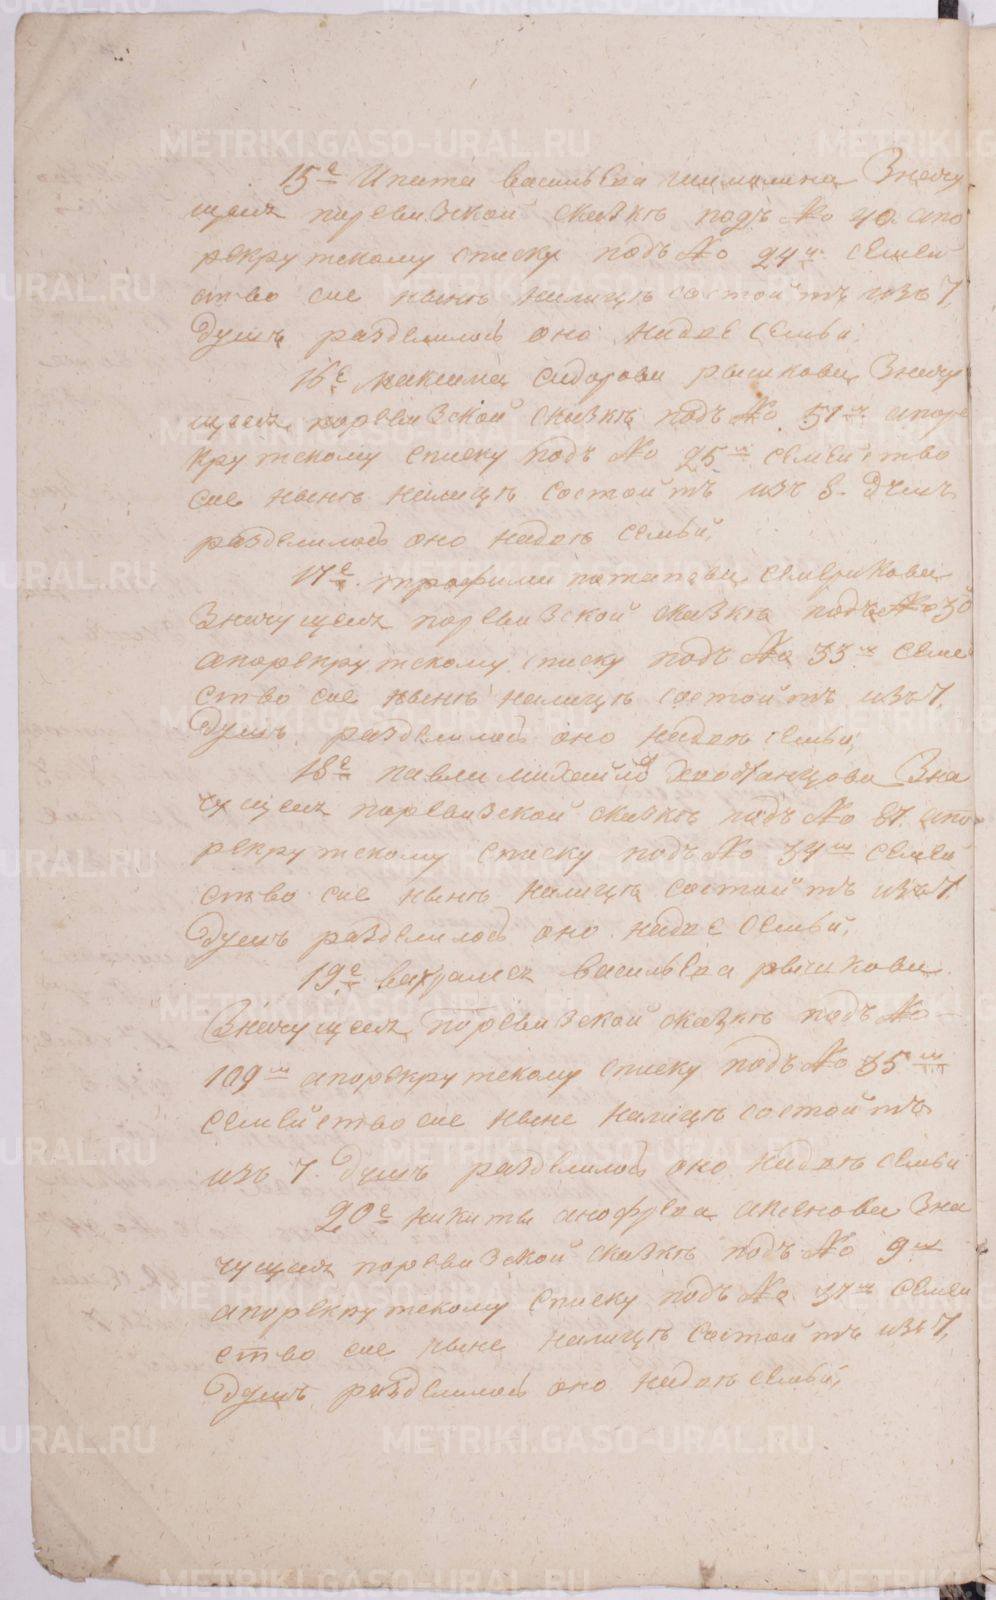 15е Ипата васильева шималина Значу
щемъ поревизской сказкѣ подъ № 40. апо
рекрутскому списку подъ № 24м. семей
ство сие нынѣ налицѣ состойтъ изъ 7,
Душъ разделилось оно надвѣ семьи,
16е максима сидорова рычкова, Значу
щемъ поревизской сказкѣ подъ № 51мъ апоре
крутскому списку подъ № 25м семейство
сие нынѣ налицѣ состойтъ изъ 8. Душъ
разделилось оно надвѣ семьи,
17е трофима потапова, семерикова
Значущемъ поревизской сказкѣ подъ № 30
апорекрутскому списку подъ № 33м семе
ство сие нынѣ налицѣ состойтъ изъ 7,
Душъ разделилось оно надвѣ семьи,
18е павла михайлова Зна
чущемъ поревизской сказкѣ подъ № 87. апо
рекрутскому списку подъ № 34м семей
ство сие нынѣ налицѣ состойтъ изъ 7,
Душъ разделилось оно надвѣ семьи,
19е вахрамея васильева рычкова
Значущемъ поревизской сказкѣ подъ №
109м апорекрутскому списку подъ № 35м
семейство сие ныне налицѣ состойтъ
изъ 7. Душъ разделилось оно надвѣ семьи
20е никиты анофрева аксенова Зна
чущемъ поревизской сказкѣ подъ № 9м
апорекрутскому списку подъ № 37м семей
ство сие ныне налицѣ состойтъ изъ 7,
Душъ разделилось оно надвѣ семьи,
METRIKI.GASO-URAL.RU